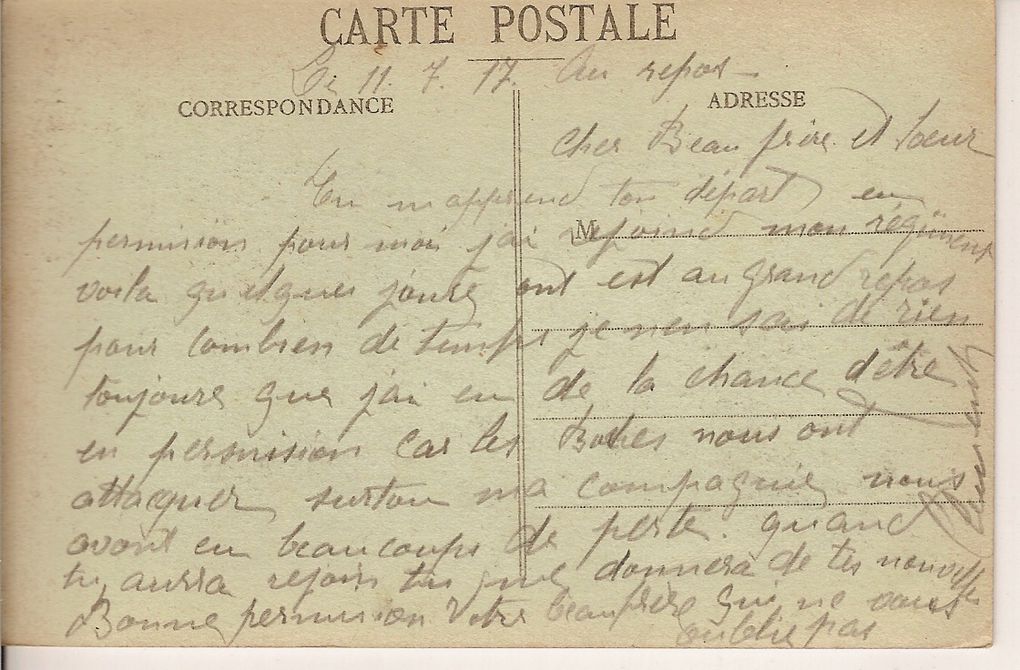 CARTE POSTALE
Le 11. 7. 17. Au repos
CORRESPONDANCE
ADRESSE
Cher Beau frère et Sœur
Tu m apprend ton départ en
M
permission pour moi jai rejoind mon régiment
voila quelques jours ont est au grand repos
pour combien de temps je nen sais de rien
toujours que jai eu de la chance dêtre
en permission car les Boches nous ont
attaquer surtou ma compagnie nous
avont eu beaucoups de perte. quand
tu aura rejoin tu me donnera de tes nouvelles
Bonne permission Votre beaufrère qui ne vous
oublie pas